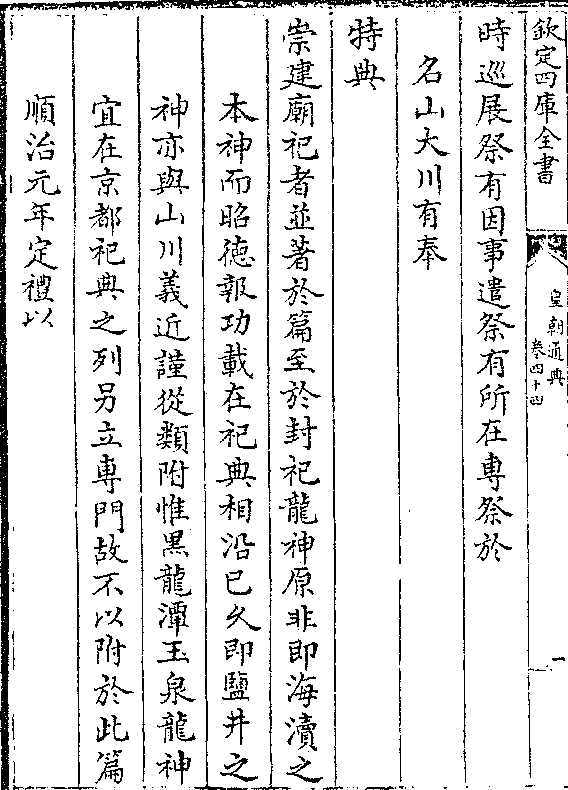 欽定四庫全書
皇朝通典
卷四十四
一
時巡展祭有因事遣祭有所在專祭於
名山大川有奉
特典
崇建廟祀者並著於篇至於封祀龍神原非即海瀆之
本神而昭德報功載在祀典相沿已久即鹽井之
神亦與山川義近謹從類附惟黑龍潭玉泉龍神
宜在京都祀典之列另立專門故不以附於此篇
順治元年定禮以